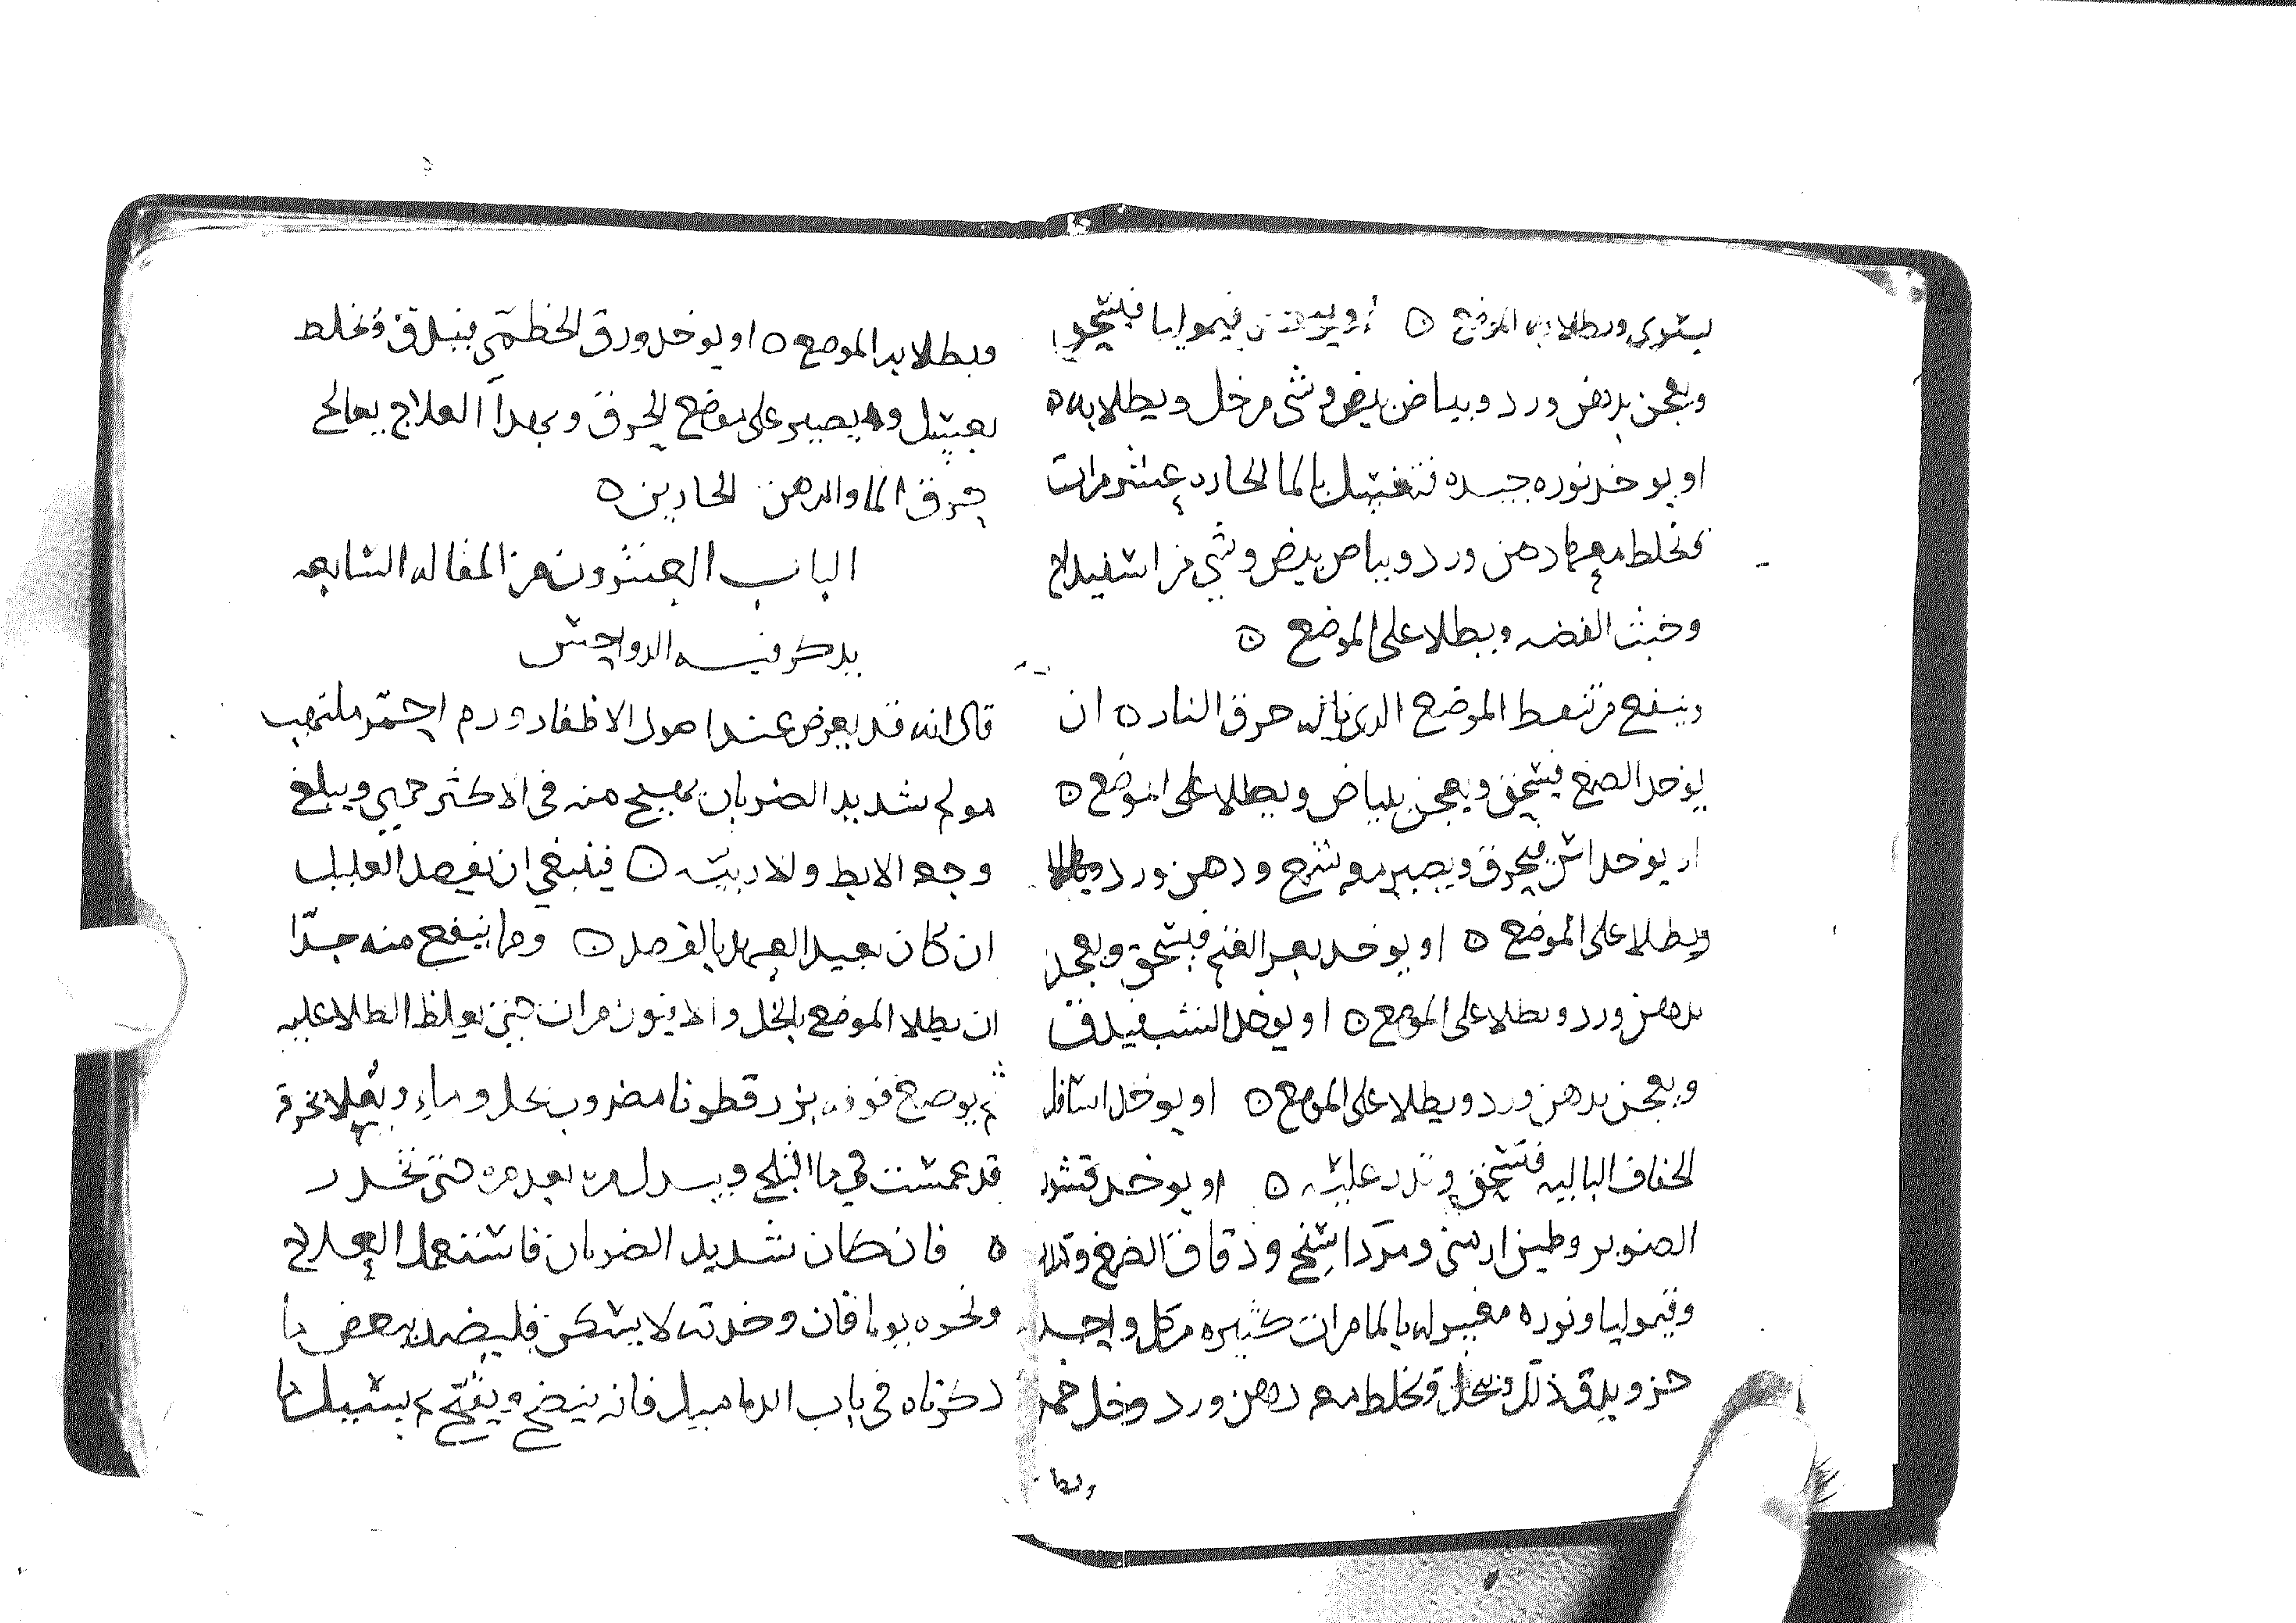 يستوى ويطلا به الموضع ه او يوخذ قيموليا فيسحق
ويعجن بدهن ورد وبياض بيض وشى من خل ويطلا به ه
او يوخد نوره جيده فتغسل بالما الحار عشر مرات
وتخلط معها دهن ورد وبياض بيض وشي من اسفيداج
وخبث الفضه ويطلا على الموضع ه
وينفع من تنفط الموضع الدى ناله حرق النار ه ان
يوخد الصمغ فيسحق ويعجن ببياض ويطلا على الموضع ه
او يوخد اس فيحرق ويصير معه شمع ودهن ورد
ويطلا على الموضع ه او يوخد بعر الغنم فيسحق ويعجن
بدهن ورد ويطلا على الموضع ه او يوخد الشب فيدق
ويعجن بدهن ورد ويطلا على الموضع ه او يوخد اسافل
الخفاف الباليه فتسحق وتدر عليه ه او يوخد قشور
الصنوبر وطين ارمنى ومرداسنج ودقاق الصمغ
وقيموليا ونوره مغسوله بالما مرات كثيره من كل واحد
جزو يدق ذلك وينخل وتخلط معه دهن ورد وخل خمر
ويطا
ويطلا به الموضع ه او يوخد ورق الخطمى فيدق وتخلط
بعسل ويصير على موضع الحرق وبهدا العلاج يعالج
حرق الما والدهن الحارين ه
الباب العشرون من المقاله السابعه
يدكر فيه الدواحس
قال انه قد يعرض عند اصول الاظفار ورم احمر ملتهب
مولم شديد الضربان يهيج منه فى الاكثر حمى ويبلغ
وجعه الابط والاربيه ه فينبغي ان يفصد العليل
ان كان بعيد العهد بالفصد ه ومما ينفع منه جدّا
ان يطلا الموضع بالخل والافيون مرات حتى يغلظ الطلا عليه
ثم يوضع فوقه بزر قطونا مضروب بخل وماء ويُعلا بخرق
قد غمست في ما الثلج ويبدل مره بعد مره حتى تخدر
ه فان كان شديد الضربان فاستعمل العلاج
ونحوه يوما فان وجدته لا يسكن فليضمد ببعض ما
دكرناه فى باب الدماميل فانه ينضج ويفتح ثم يسيل ما